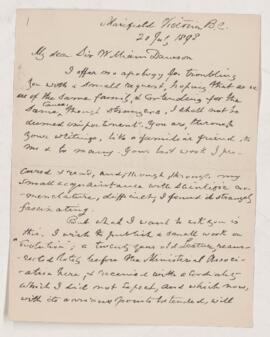 Maxfield Victoria B.C.
20 July 1898
My dear Sir William Dawson
I offer no apology for troubling
you with a small request, hoping that as
one of the same family, & contending for the
same cause, though strangers, I shall not be
deemed impertinent. You are, through
your writings, like a familiar friend to
me & to many. Your last work I pro-
cured & read, and, though, through my
small acquaintance with scientific no-
menclature, difficult, I found it strangely
fascinating.
But what I want to ask you is
this. I wish to publish a small work on
"Evolution"; a twenty years old Lecture,
lately before the Ministerial Associ-
ation here, & received with a cordiality
which I did not expect, and which now,
with its